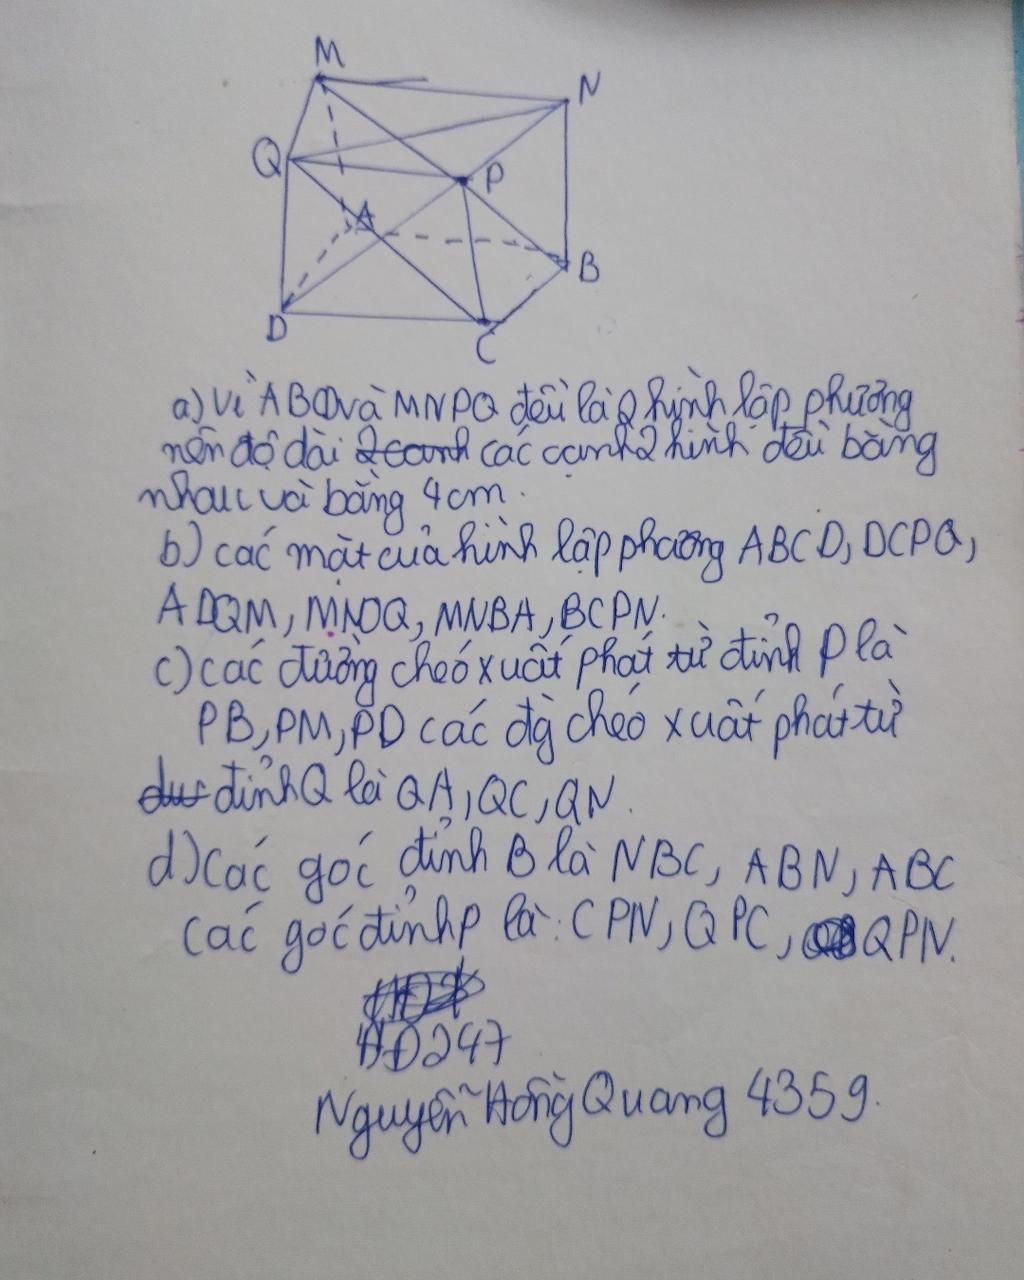 M
N
Q
P
A
B
D
C
a) Vì ABCD và MNPQ đều là 2 hình lập phương
nên độ dài các cạnh 2 hình đều bằng
nhau và bằng 4cm.
b) các mặt của hình lập phương ABCD, DCPQ,
ADQM, MNDQ, MNBA, BCPN.
c) các đường chéo xuất phát từ đỉnh P là
PB, PM, PD các đg chéo xuất phát từ
đỉnh Q là QA, QC, QN.
d) Các góc đỉnh B là NBC, ABN, ABC
Các góc đỉnh P là: CPN, QPC, QPN.
HD247
Nguyễn Hồng Quang 4359.